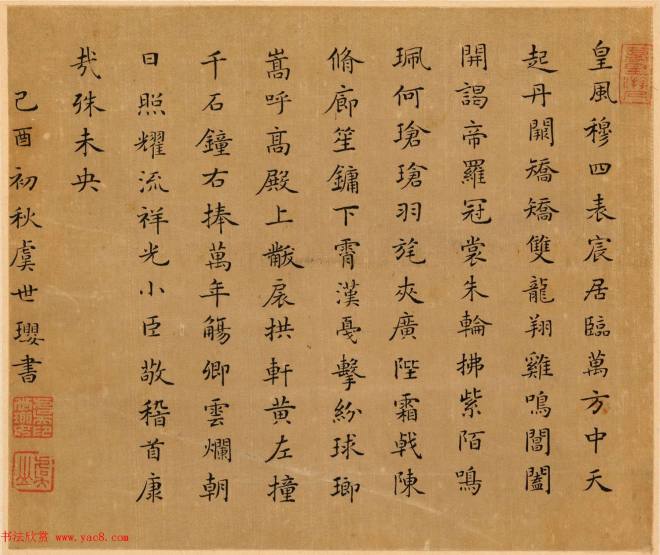 皇風穆四表宸居臨萬方中天
起丹闕矯矯雙龍翔雞鳴閶闔
開謁帝羅冠裳朱輪拂紫陌鳴
珮何瑲瑲羽旄夾廣陛霜戟陳
脩廊笙鏞下霄漢戞擊紛球瑯
嵩呼高殿上黻扆拱軒黄左撞
千石鐘右捧萬年觴卿雲爛朝
日照耀流祥光小臣敬稽首康
哉殊未央
己酉初秋虞世瓔書
书法欣赏 www.yac8.com